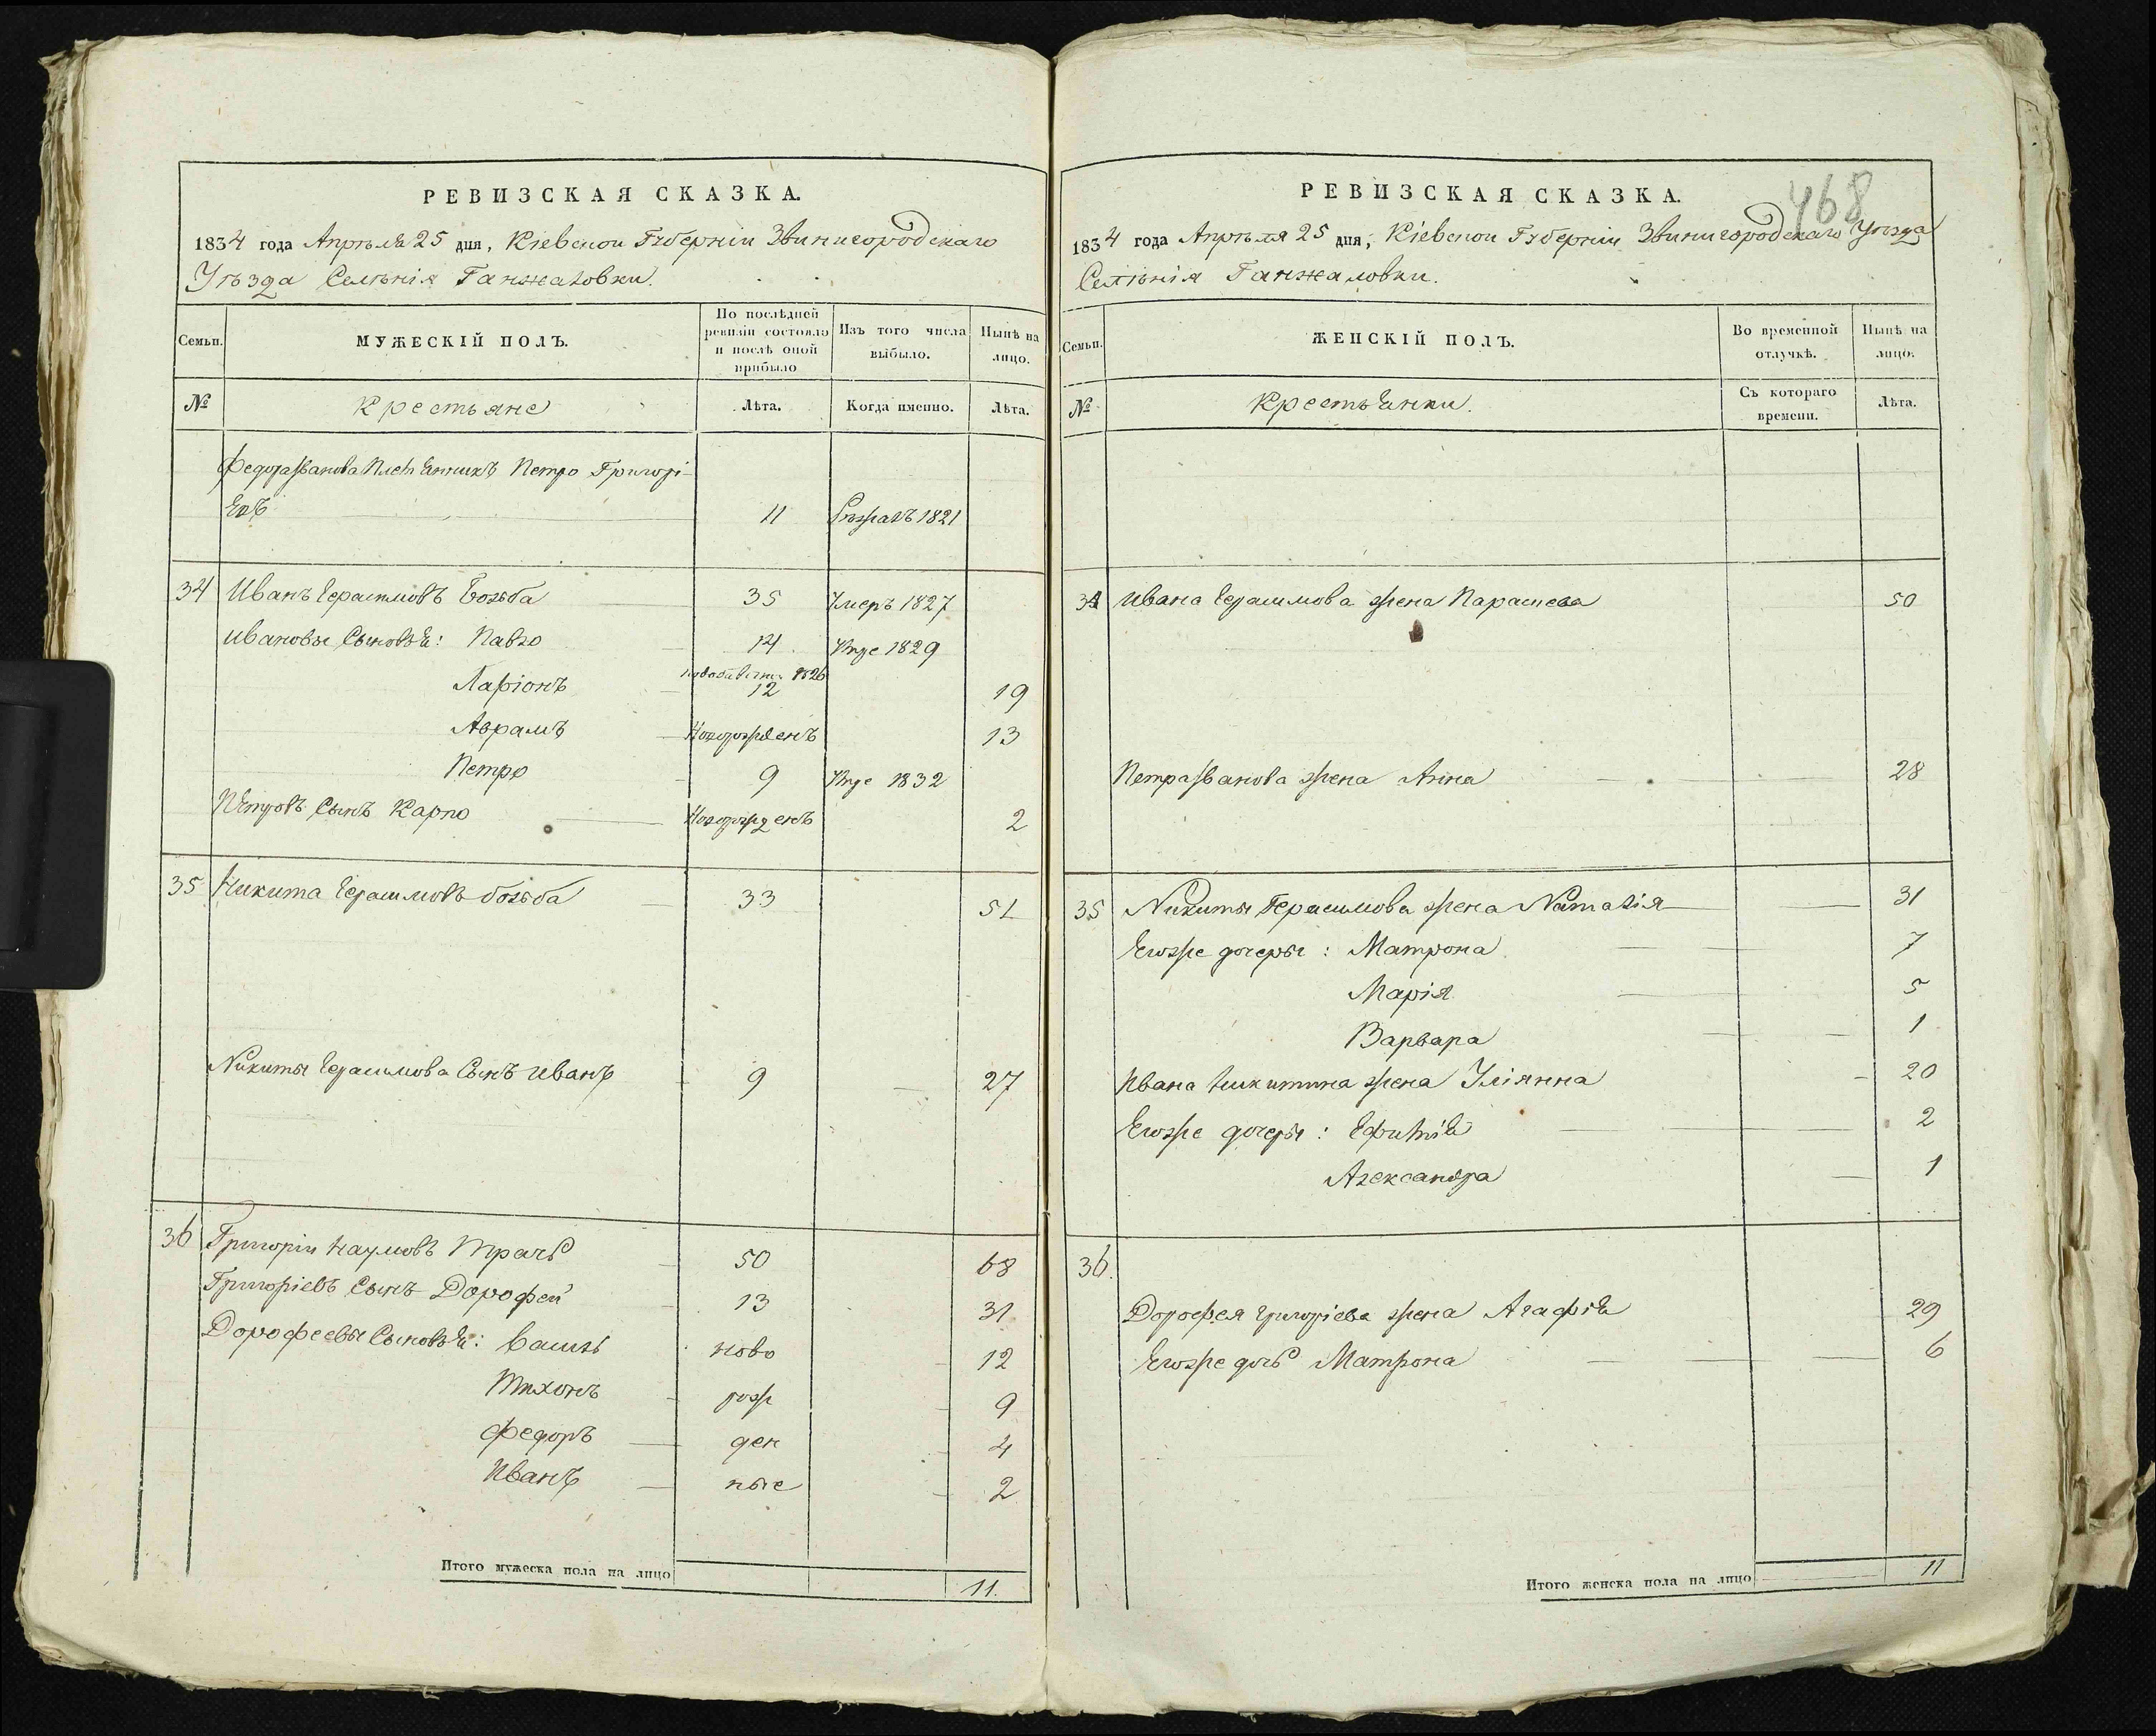 РЕВИЗСКАЯ СКАЗКА.
1834 года Апрѣля 25 дня, Кіевской Губерніи Звинигородскаго
Уѣзда Селѣнія Ганжаловки.
Семьи.
МУЖЕСКІЙ ПОЛЪ.
По послѣдней ревизіи состояло и послѣ оной прибыло
Изъ того числа выбыло.
Нынѣ на лицо.
№ Крестьяне Лѣта. Когда именно. Лѣта.
Федора Иванова Племянникъ Петро Григорі-
евъ 11 1821
34 Иванъ Герасимовъ 35 Умеръ 1827
Ивановы Сыновья: Павло 14 1829
1826
Ларіонъ 12 19
Аврамъ Новорожденъ 13
Петро 9 1832
Петровъ Сынъ Карпо Новорожденъ 2
35 Никита Герасимовъ 33 51
Никиты Герасимова Сынъ Иванъ 9 27
36 Григорій Наумовъ Ткачь 50 68
Григоріевъ Сынъ Дорофей 13 31
Дорофеевы Сыновья: Василь ново 12
Тихонъ рож 9
Федоръ ден 4
Иванъ ные 2
Итого мужеска пола на лицо 11.
468
РЕВИЗСКАЯ СКАЗКА.
1834 года Апрѣля 25 дня, Кіевской Губерніи Звинигородскаго Уѣзда
Селѣнія Ганжаловки.
Семьи.
ЖЕНСКІЙ ПОЛЪ.
Во временной отлучкѣ.
Нынѣ на лицо.
№ Крестьянки. Съ котораго времени. Лѣта.
34 Ивана Герасимова жена Парасковея 50
Петра Иванова жена Анна 28
35 Никиты Герасимова жена Наталія 31
Егоже дочеры: Матрона 7
Марія 5
Варвара 1
Ивана Никитина жена Уліянна 20
Егоже дочеры: Ефимія 2
Александра 1
36.
Дорофея Григоріева жена Агафія 29
Егоже дочь Матрона 6
Итого женска пола на лицо 11